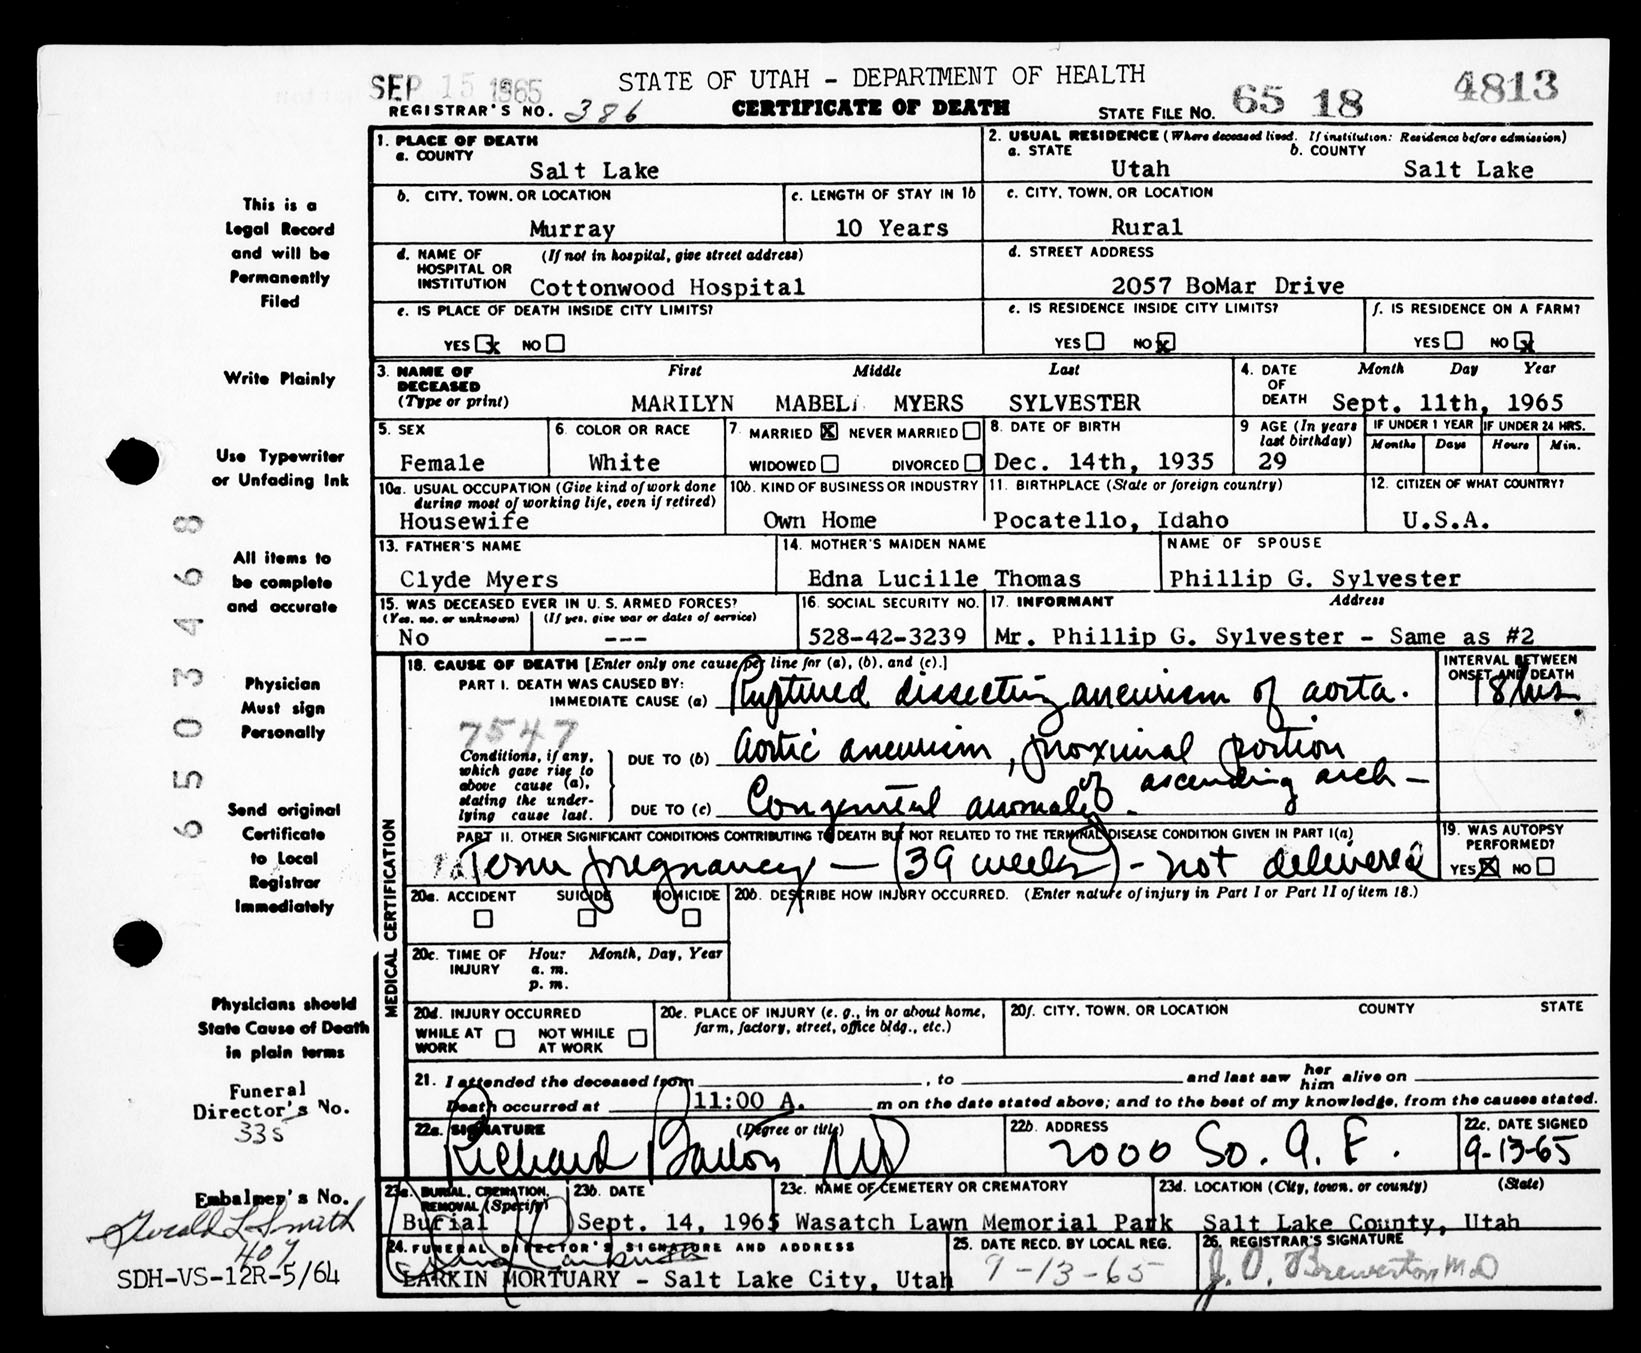 SEP 15 1965
STATE OF UTAH - DEPARTMENT OF HEALTH
CERTIFICATE OF DEATH
REGISTRAR'S NO. 386
STATE FILE NO. 65 18 4813
This is a
Legal Record
and will be
Permanently
Filed
Write Plainly
Use Typewriter
or Unfading Ink
All items to
be complete
and accurate
Physician
Must sign
Personally
Send original
Certificate
to Local
Registrar
Immediately
Physicians should
State Cause of Death
in plain terms
Funeral
Director's No.
335
Embalmer's No.
Gerald L. Smith
407
SDH-VS-12R-5/64
65034 68
1. PLACE OF DEATH
a. COUNTY
Salt Lake
2. USUAL RESIDENCE (Where deceased lived. If institution: Residence before admission)
a. STATE b. COUNTY
Utah Salt Lake
b. CITY, TOWN, OR LOCATION
Murray
c. LENGTH OF STAY IN 1b
10 Years
c. CITY, TOWN, OR LOCATION
Rural
d. NAME OF (If not in hospital, give street address)
HOSPITAL OR
INSTITUTION Cottonwood Hospital
d. STREET ADDRESS
2057 BoMar Drive
e. IS PLACE OF DEATH INSIDE CITY LIMITS?
YES x NO
e. IS RESIDENCE INSIDE CITY LIMITS?
YES NO x
f. IS RESIDENCE ON A FARM?
YES NO x
3. NAME OF First Middle Last
DECEASED
(Type or print) MARILYN MABEL MYERS SYLVESTER
4. DATE Month Day Year
OF
DEATH Sept. 11th, 1965
5. SEX
Female
6. COLOR OR RACE
White
7. MARRIED X NEVER MARRIED
WIDOWED DIVORCED
8. DATE OF BIRTH
Dec. 14th, 1935
9 AGE (In years
last birthday)
29
IF UNDER 1 YEAR
Months Days
IF UNDER 24 HRS.
Hours Min.
10a. USUAL OCCUPATION (Give kind of work done
during most of working life, even if retired)
Housewife
10b. KIND OF BUSINESS OR INDUSTRY
Own Home
11. BIRTHPLACE (State or foreign country)
Pocatello, Idaho
12. CITIZEN OF WHAT COUNTRY?
U.S.A.
13. FATHER'S NAME
Clyde Myers
14. MOTHER'S MAIDEN NAME
Edna Lucille Thomas
NAME OF SPOUSE
Phillip G. Sylvester
15. WAS DECEASED EVER IN U. S. ARMED FORCES?
(Yes, no, or unknown) (If yes, give war or dates of service)
No ---
16. SOCIAL SECURITY NO.
528-42-3239
17. INFORMANT Address
Mr. Phillip G. Sylvester - Same as #2
MEDICAL CERTIFICATION
18. CAUSE OF DEATH [Enter only one cause per line for (a), (b), and (c).]
PART I. DEATH WAS CAUSED BY:
IMMEDIATE CAUSE (a) Ruptured dissecting aneurism of aorta.
INTERVAL BETWEEN
ONSET AND DEATH
18 hrs.
7547
Conditions, if any,
which gave rise to
above cause (a),
stating the under-
lying cause last.
DUE TO (b) Aortic aneurism, proximal portion
of ascending arch -
DUE TO (c) Congenital anomaly.
PART II. OTHER SIGNIFICANT CONDITIONS CONTRIBUTING TO DEATH BUT NOT RELATED TO THE TERMINAL DISEASE CONDITION GIVEN IN PART I(a)
Term pregnancy - (39 weeks) - not delivered
19. WAS AUTOPSY
PERFORMED?
YES X NO
20a. ACCIDENT SUICIDE HOMICIDE
20b. DESCRIBE HOW INJURY OCCURRED. (Enter nature of injury in Part I or Part II of item 18.)
20c. TIME OF Hour Month, Day, Year
INJURY a. m.
p. m.
20d. INJURY OCCURRED
WHILE AT WORK NOT WHILE AT WORK
20e. PLACE OF INJURY (e. g., in or about home,
farm, factory, street, office bldg., etc.)
20f. CITY, TOWN, OR LOCATION COUNTY STATE
21. I attended the deceased from , to and last saw her him alive on
Death occurred at 11:00 A. m on the date stated above; and to the best of my knowledge, from the causes stated.
22a. SIGNATURE (Degree or title)
Richard MD
22b. ADDRESS
2000 So. 9. E.
22c. DATE SIGNED
9-13-65
23a. BURIAL, CREMATION,
REMOVAL (Specify)
Burial
23b. DATE
Sept. 14, 1965
23c. NAME OF CEMETERY OR CREMATORY
Wasatch Lawn Memorial Park
23d. LOCATION (City, town, or county) (State)
Salt Lake County, Utah
24. FUNERAL DIRECTOR'S SIGNATURE AND ADDRESS
LARKIN MORTUARY - Salt Lake City, Utah
25. DATE RECD. BY LOCAL REG.
9-13-65
26. REGISTRAR'S SIGNATURE
J. O. Brewerton M.D